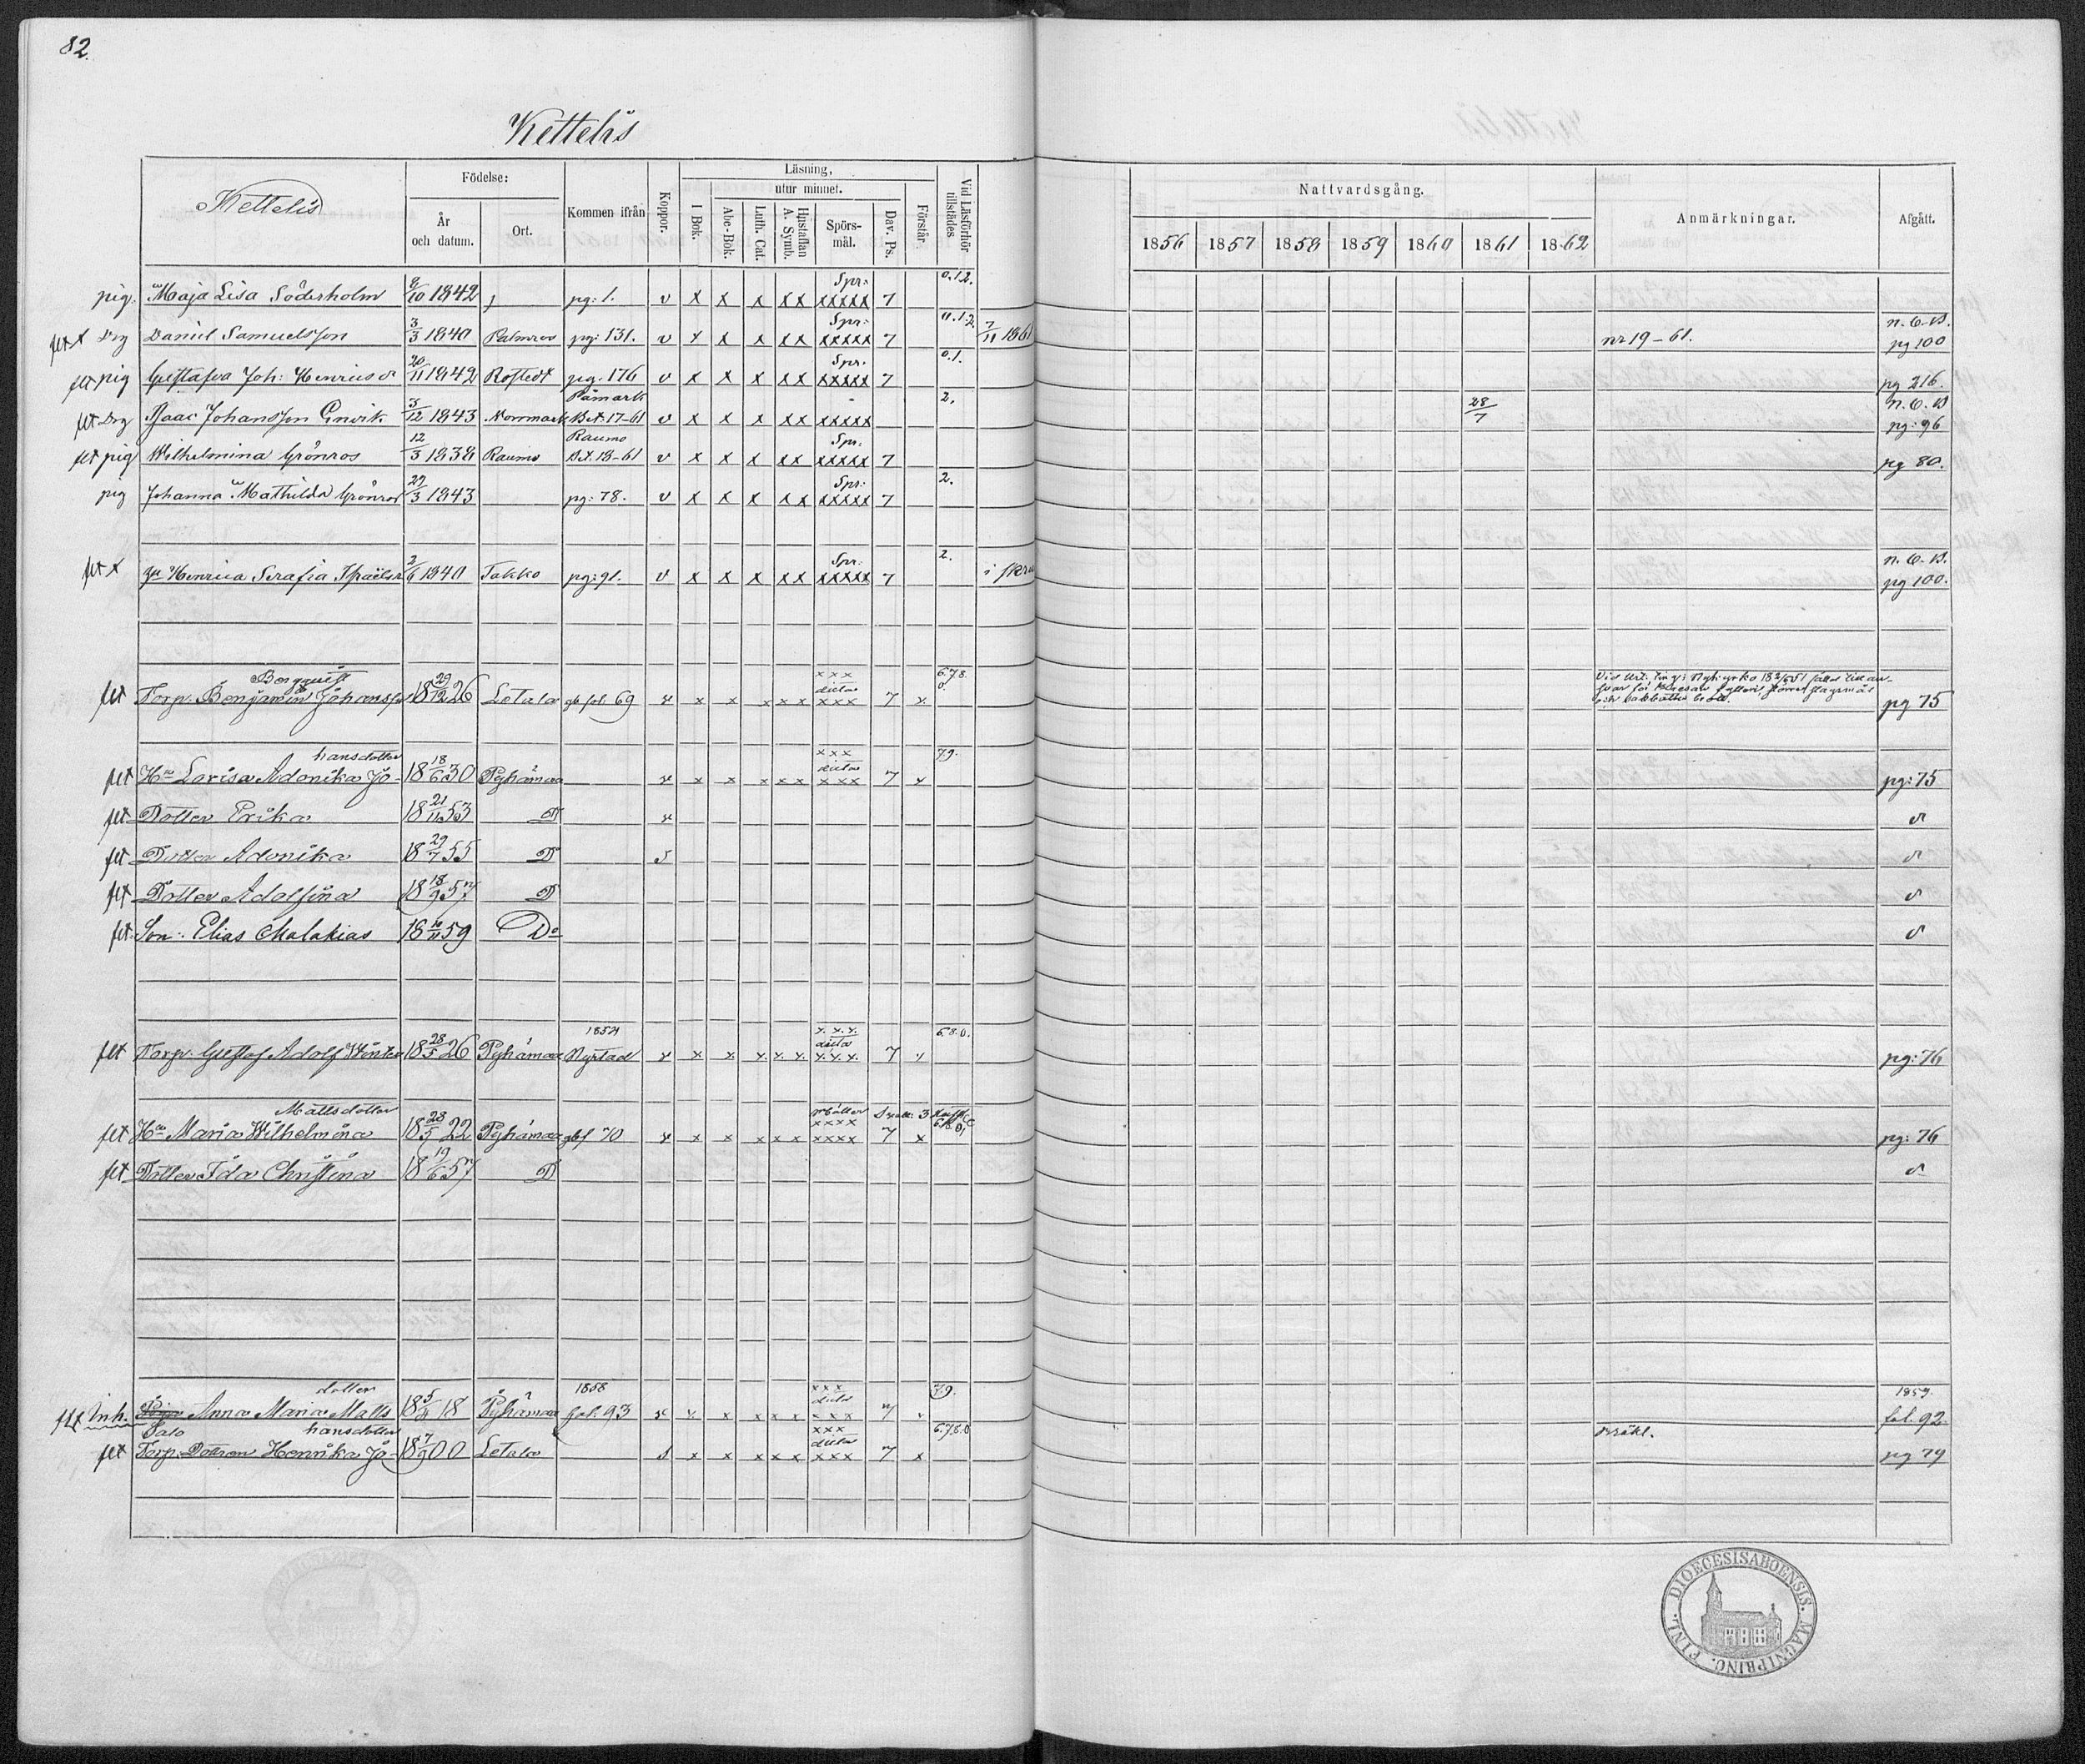 82.
Kettelis
Födelse:
Läsning,
utur minnet.
Kettelis
År och datum.
Ort.
Kommen ifrån
Koppor.
I Bok.
Abc-Bok.
Luth. Cat.
Hustaflan A. Symb.
Spörs-mål.
Dav. Ps.
Förstår.
Vid Läsförhör tillstädes
Nattvardsgång.
1856 1857 1858 1859 1860 1861 1862
Anmärkningar.
Afgått.
pig. Maja Lisa Söderholm 8/10 1842 pg: 1. v x x x xx Spr: xxxxx 7 0.1.2.
flt x Drg Daniel Samuelsson 3/3 1840 Palmroo pg: 131. v x x x xx Spr: xxxxx 7 0.1.2. 7/11 1861 nr 19-61. n. C. B. pg 100
flt pig Gustafva Joh: Henricsdr 20/11 1842 Rostedt pg. 176 v x x x xx Spr. xxxxx 7 0.1. pg 216.
flt Drg Isaac Johansson Envik 3/12 1843 Norrmark Påmark Bet. 17-61 v x x x xx xxxxx 2. 28/7 n. C. B pg: 96
flt pig Wilhelmina Grönroos 12/3 1838 Raumo Raumo Bet. 18-61 v x x x xx Spr. xxxxx 7 pg 80.
pig Johanna Mathilda Grönros 29/3 1843 pg: 78. v x x x xx Spr: xxxxx 7 2.
flt x Henrica Serafia Israelsdr 2/6 1840 Takko pg: 91. v x x x xx Spr: xxxxx 7 2. n. C. B. pg 100.
Bergquist
flt Torp. Benjamin Johansson 18 29/12 26 Letala gb fol. 69 x x x x x x xxx dicta xxx 7 x 6.7.8. 0. pg 75
hansdotter
flt Hu Lovisa Adonika Jo- 18 18/6 30 Pyhämaa x x x x x x xxx dicta xxx 7 x 7.9. pg: 75
flt Dotter Erika 18 21/11 53 D x
flt Dotter Adonika 18 29/7 55 D s
flt Dotter Adolfina 18 18/9 57 D
flt Son: Elias Malakias 18 11/11 59 Do
1854
flt Torp. Gustaf Adolf Winter 18 28/5 26 Pyhämaa Nystad x x x x x x x.x.x. dicta x.x.x. 7 x 6.8.0. pg: 76
Mattsdotter
flt Hu Maria Wilhelmina 18 28/5 22 Pyhämaa gbf 70 x x x x x x xxxx xxxx 7 x pg: 76
flt Dotter Ida Christina 18 19/6 57 D
dotter 1858 1859.
flt Inh. Anna Maria Matts 18 5/11 18 Pyhämaa fol. 93 x x x x x x xxx dicta xxx 7 7.9. fol. 92
Salo hansdotter
flt Torp. Dottren Henrika Jo- 18 7/9 00 Letala s x x x x x xxx dicta xxx 7 x 6.7.8.0 bräkl. pg 79
DIOECESIS ABOENSIS. MAGNI PRINC. FINL.